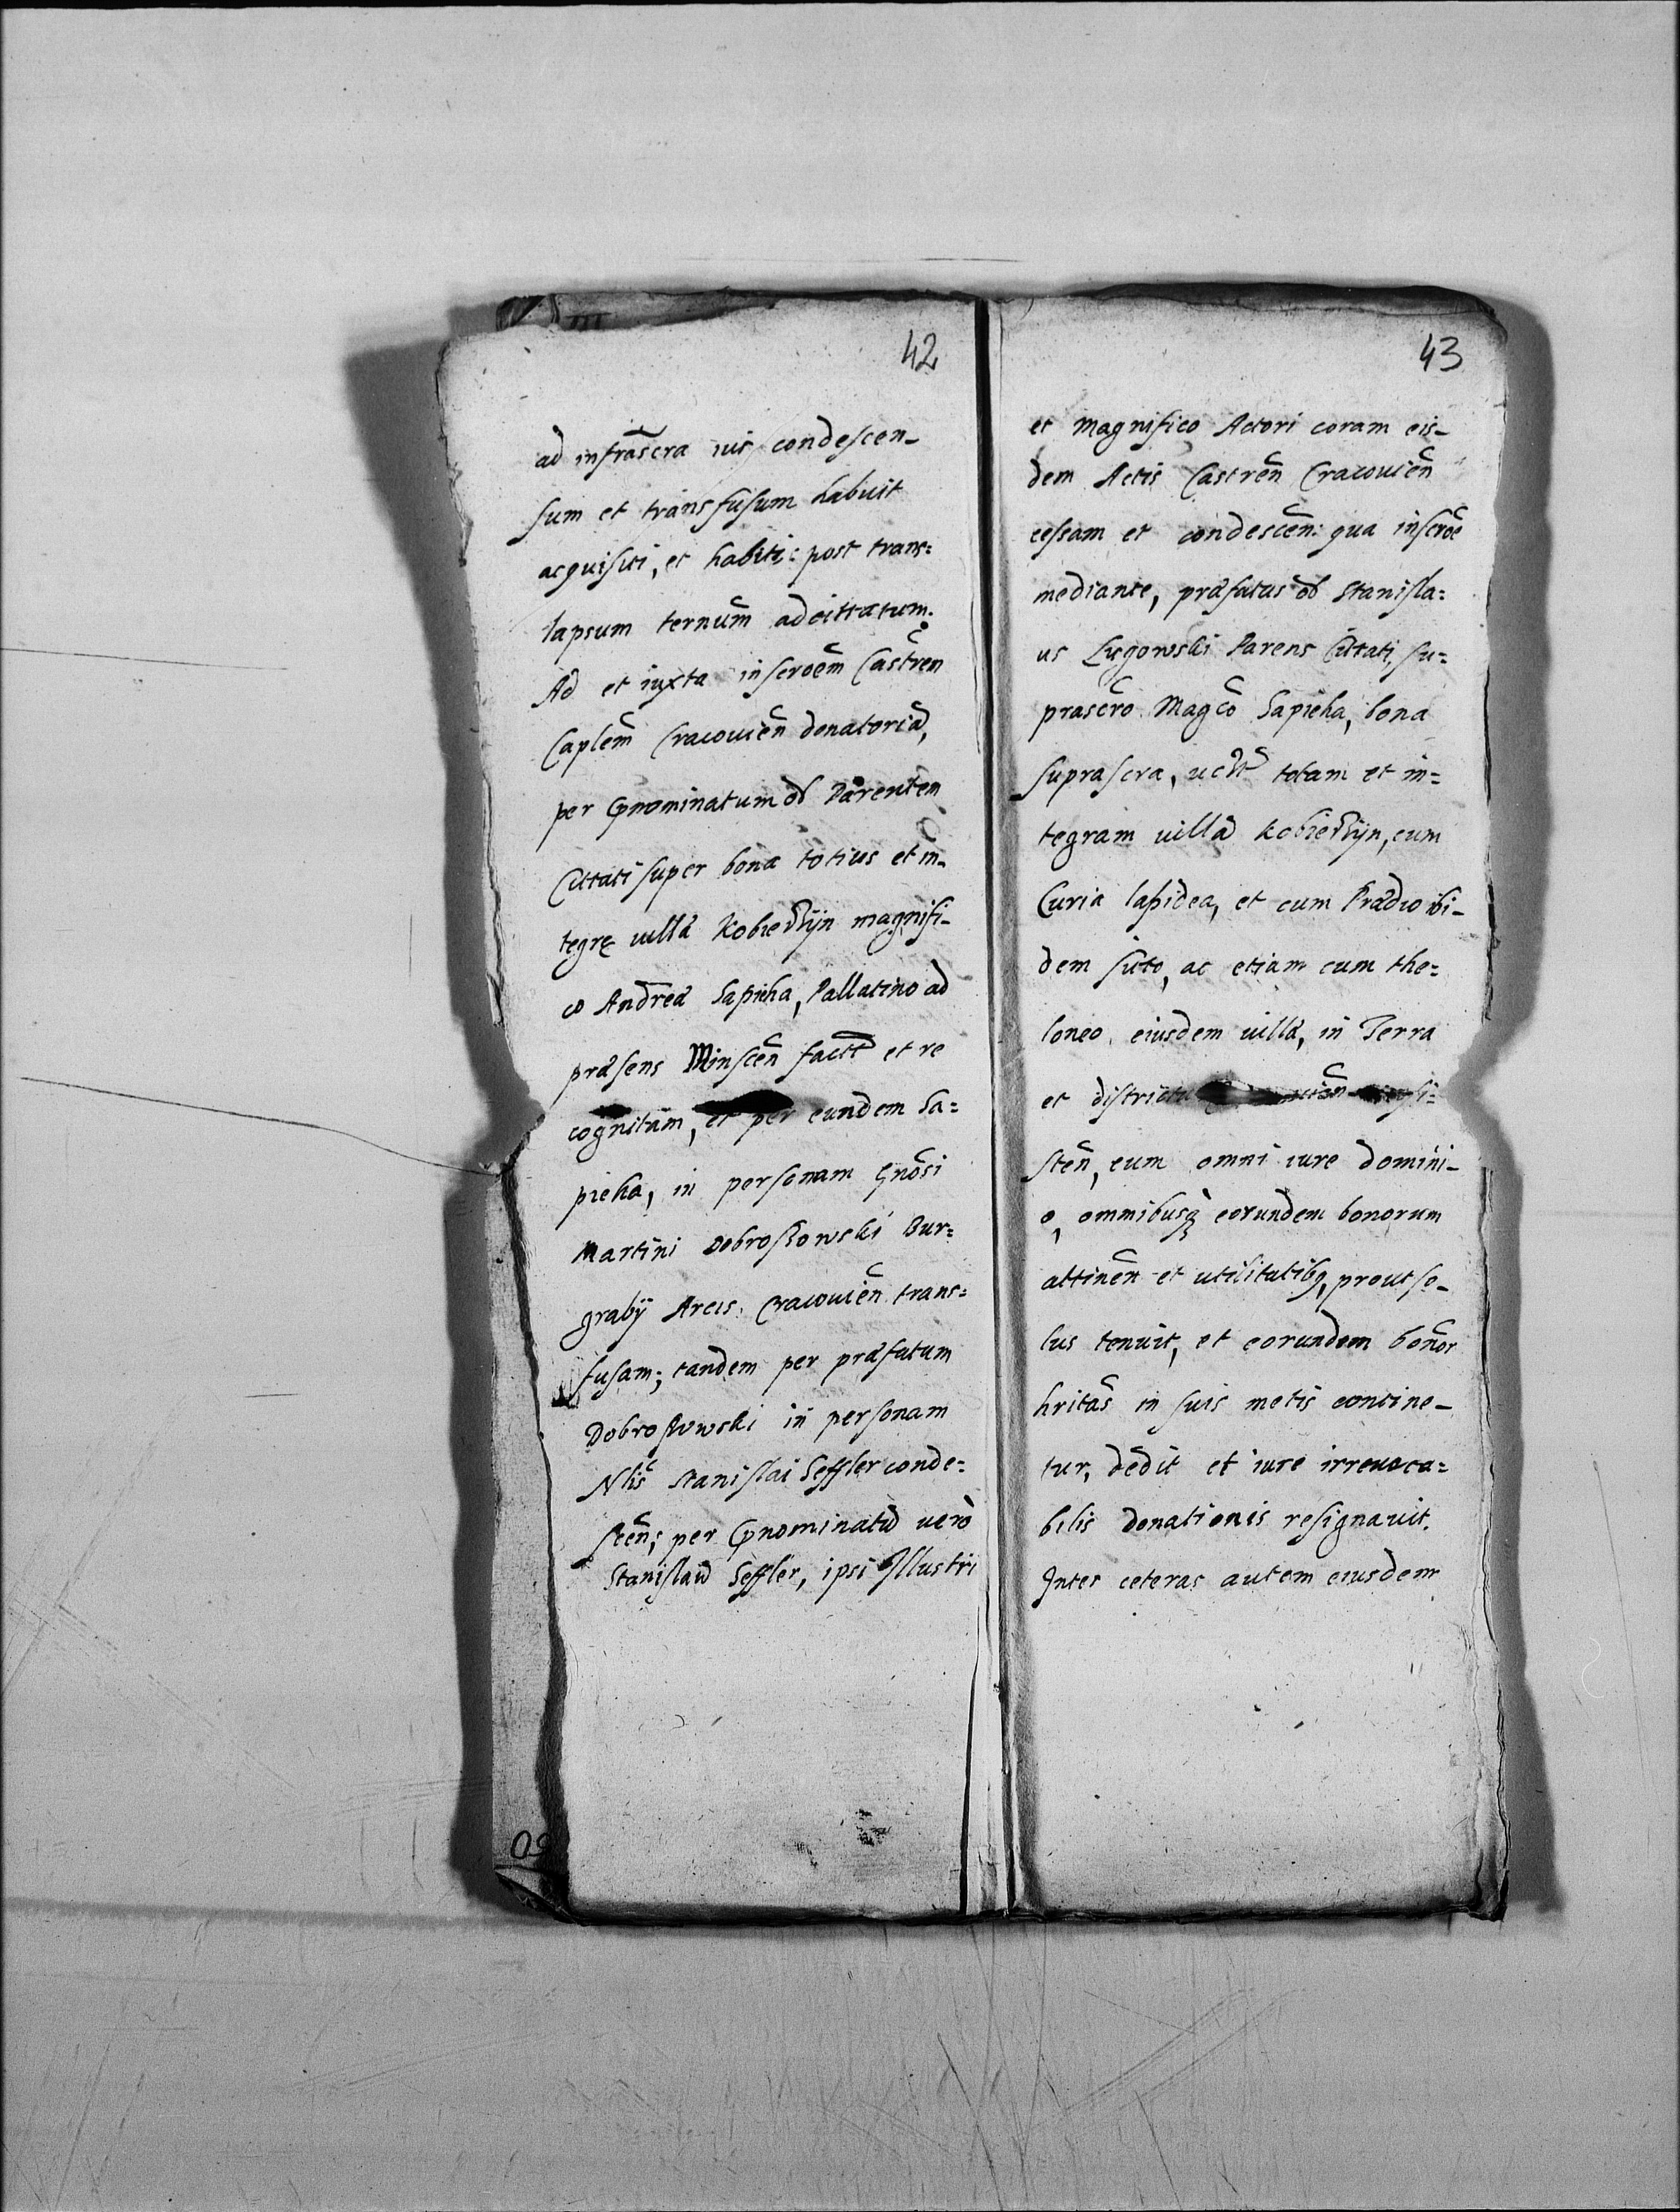 42
ad infrascra ius condescen-
sum et transfusum habuit
acquisiti, et habiti: post trans=
lapsum ternum ad cittatum.
Ad et iuxta inscroem Castren
Caplem Cracouien donatoria,
per Gnominatum olim Parentem
Cittati super bona totius et in-
tegrę villa Kobierzijn magnifi-
co Andrea Sapieha, Pallatino ad
præsens Minscen factā et re
cognitam, et per eundem Sa=
pieha, in personam Gnosi
Martini Dobroszowski Bur=
grabij Arcis Cracouien trans=
fusam; tandem per præfatum
Dobroszowski in personam
Nlis Stanislai Seffler conde=
scen; per Gnominatū vero
Stanislaū Seffler, ipsi Illustri
43
et Magnifico Actori coram eis-
dem Actis Castren Cracouien
cessam et condescen: qua inscroe
mediante, præfatus olim Stanisla=
us Ługowski Parens Cittati, su=
prascro Magco Sapieha, bona
suprascra, uclt totam et in=
tegram villā Kobierzijn, cum
Curia lapidea, et cum Prædio ibi-
dem sito, ac etiam cum the=
loneo eiusdem villa, in Terra
et
sten, cum omni iure domini-
o, omnibusq eorundem bonorum
attinen et utilitatibq, prout so-
lus tenuit, et eorundem bonor
hritas in suis metis contine-
tur, dedit et iure irreuoca=
bilis donationis resignauit.
Inter ceteras autem eiusdem